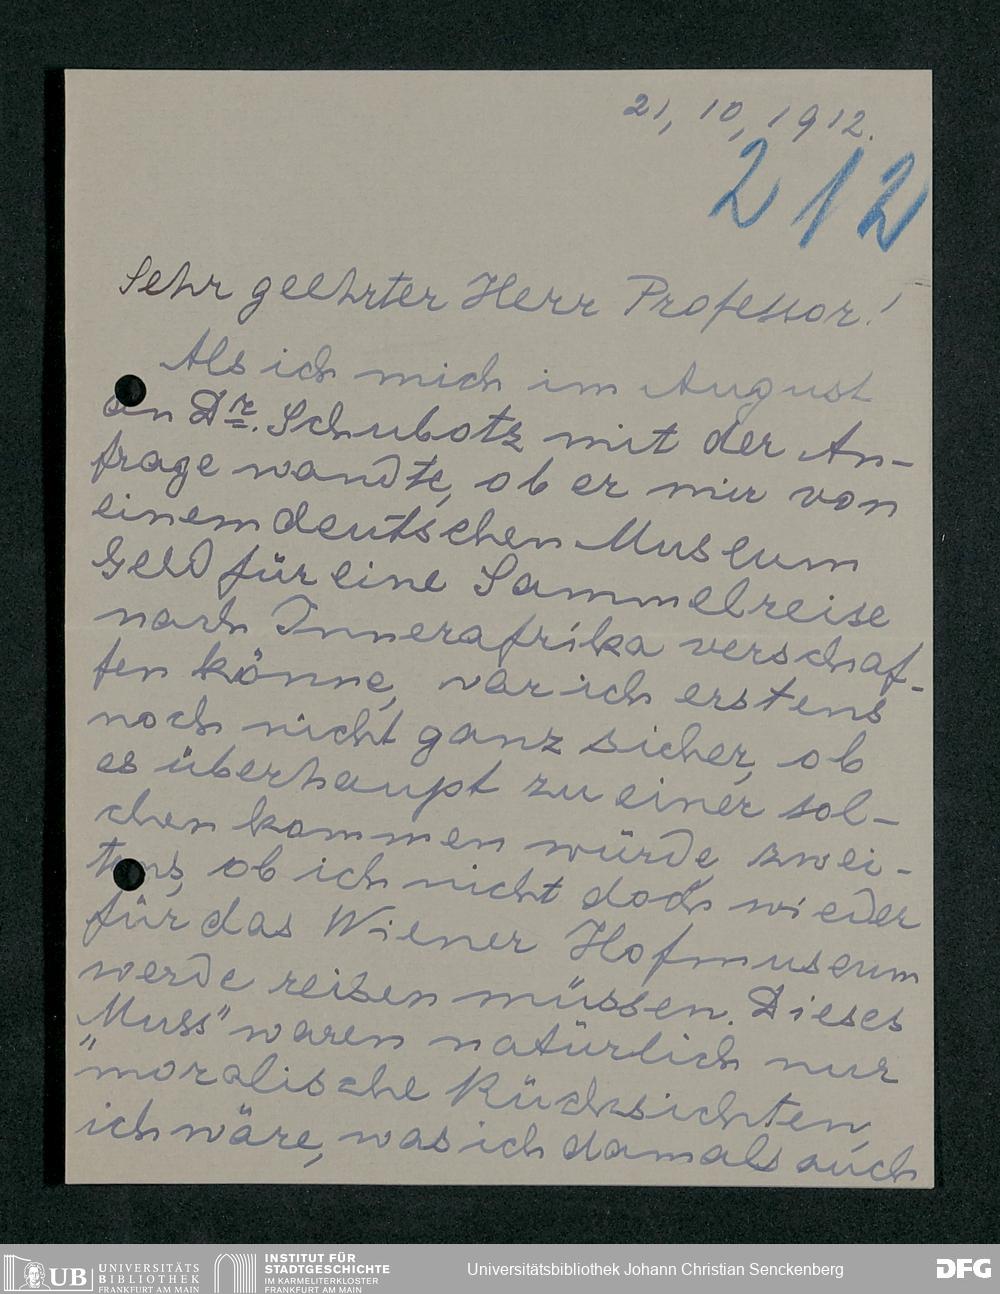 21, 10, 1912.
212
Sehr geehrter Herr Professor!
Als ich mich im August
an Dr. Schubotz mit der An-
frage wandte, ob er mir von
einem deutschen Museum
Geld für eine Sammelreise
nach Innerafrika verschaf-
fen könne, war ich erstens
noch nicht ganz sicher, ob
es überhaupt zu einer sol-
chen kommen würde, zwei-
tens, ob ich nicht doch wieder
für das Wiener Hofmuseum
werde reisen müssen. Dieses
"Muss" waren natürlich nur
moralische Rücksichten,
ich wäre, was ich damals auch
UB UNIVERSITÄTS
BIBLIOTHEK
FRANKFURT AM MAIN
INSTITUT FÜR
STADTGESCHICHTE
IM KARMELITERKLOSTER
FRANKFURT AM MAIN
Universitätsbibliothek Johann Christian Senckenberg
DFG